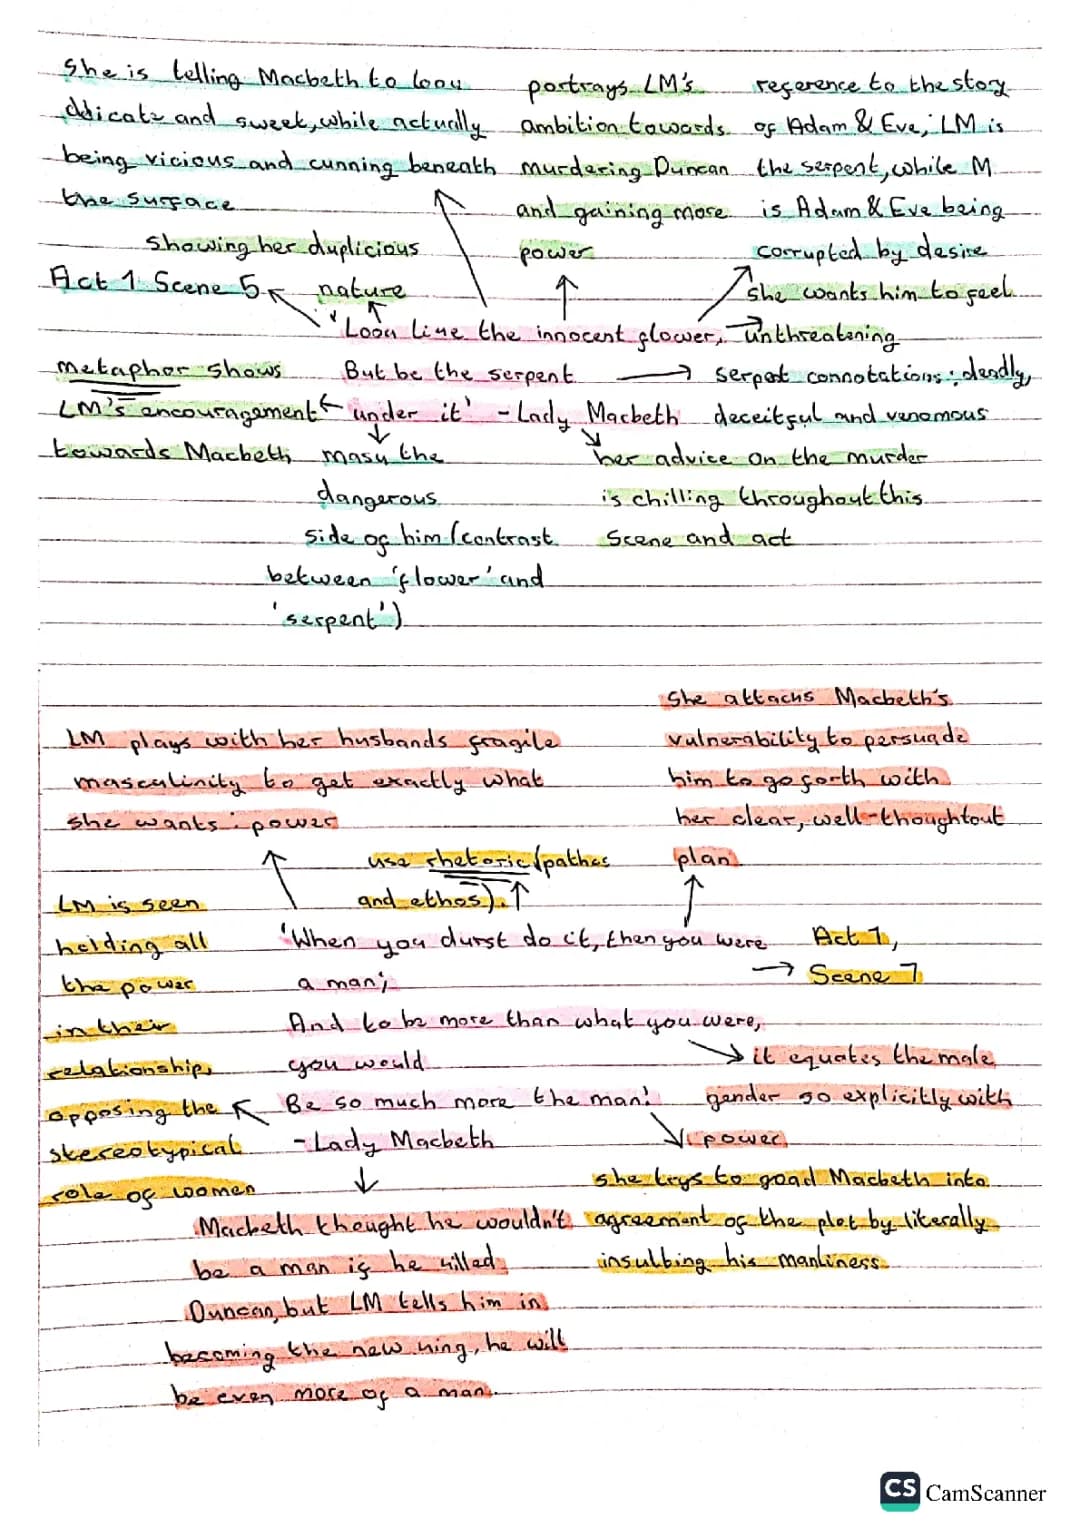 She is telling Macbeth to look
ddicate and sweet, while actually
being vicious and cunning beneath
the surface
portrays LM's
ambition towards
murdering Duncan
and gaining more
power
reference to the story
of Adam & Eve; LM is
the serpent, while M
is Adam & Eve being
corrupted by desire
showing her duplicious
nature
Act 1 Scene 5
she wants him to feel
unthreatening
'Look like the innocent flower,
But be the serpent
under it' - Lady Macbeth
metaphor shows
LM's encouragement
towards Macbeth
serpent connotations: deadly,
deceitful and venomous
mask the
dangerous
side of him (contrast
between 'flower' and
'serpent')
her advice on the murder
is chilling throughout this
scene and act
LM plays with her husbands fragile
masculinity to get exactly what
she wants: power
She attacks Macbeth's
vulnerability to persuade
him to go forth with
her clear, well-thoughtout
plan
use rhetoric (pathos
and ethos).
LM is seen
holding all
the power
in their
relationship,
opposing the
stereotypical
role of women
'When you durst do it, then you were
a man;
And to be more than what you were,
you would
Be so much more the man!
- Lady Macbeth
Act 1,
Scene 7
it equates the male
gender so explicitly with
power
she trys to goad Macbeth into
agreement of the plot by literally
insulting his manliness.
Macbeth thought he wouldn't
be a man if he killed
Duncan, but LM tells him in
becoming the new king, he will
be even more of a man.
CS CamScanner